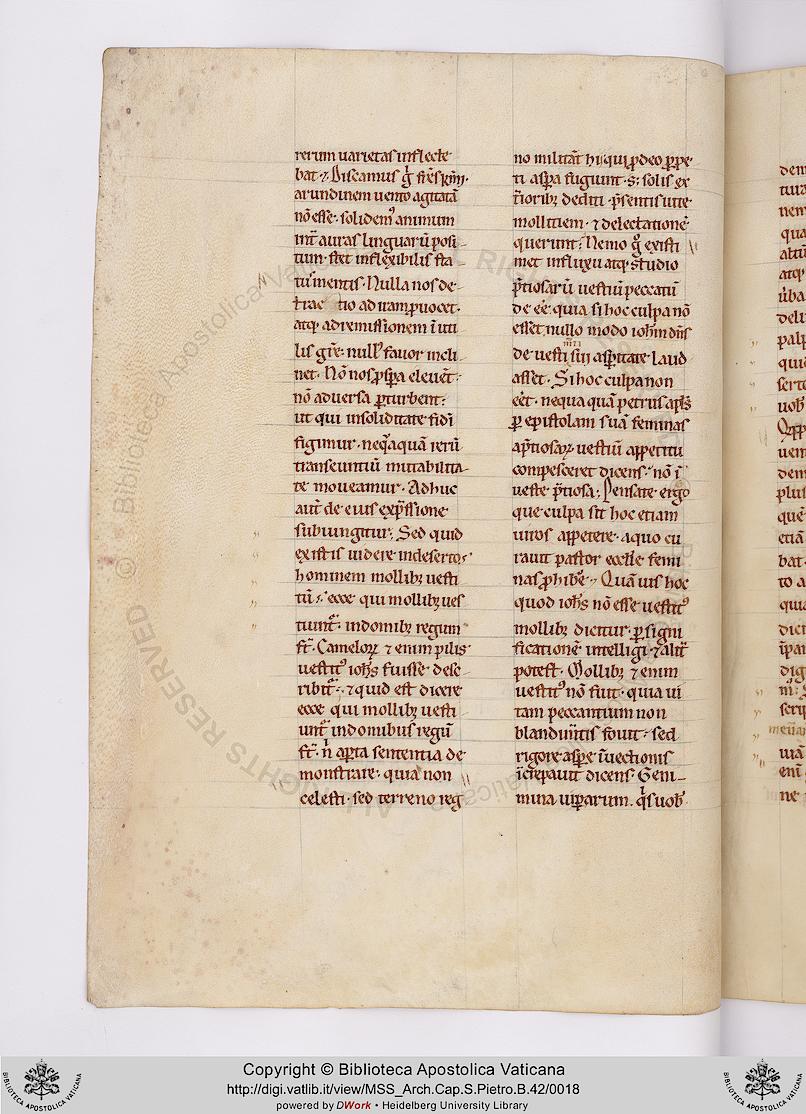 rerum uarietas inflecte
bat ⁊. Discamus g̊ fr̄es kr̄mi.
arundinem uento agitatā
nō esse. solidem⁹ animum
int̄ auras linguarū posi
tum. stet inflexibilis sta
tus mentis. Nulla nos de
trac tio ad iram ꝓuocet.
atq; ad remissionem ī uti
lis gr̄e: null⁹ fauor incli
net. Nō nos ꝓspa eleuēt.
nō aduersa ꝑturbent:
ut qui in soliditate fidi
figimur. neq̄aquā rerū
transeuntiū mutabilita
te moueamur. Adhuc
aut̄ de eius exp̄ssione
subiungitur. Sed quid
existis uidere in deserto.
hominem mollib; uesti
tū. ecce qui mollib; ues
tiunt̄. in domib; regum
st̄. Cameloꝝ ⁊ enim pilis
uestit⁹ ioh̄s fuisse desc
ribit̄. ⁊ quid est dicere
ecce qui mollib; uesti
unt̄ in domibus regū
st̄. n̄ aꝑta sententia de
monstrare. quia non
celesti. sed terreno reg
no militāt hi qui ꝓ deo ꝓpe
ti aspa fugiunt. s; solis ex
t̄iorib; dediti. p̄sentis uite
mollitiem. ⁊ delectationē
querunt. Nemo g̊ existi
met in fluxu atq; studio
p̄tiosarū uestiū peccatū
de eē. quia si hoc culpa nō
esset. nullo modo ioh̄m dn̄s
de uesti sui aspitate laud
mti
asset. Si hoc culpa non
eēt. nequa quā petrus apl̄s
ꝑ epistolam suā feminas
a p̄tiosaꝝ uestiū appetitu
compesceret dicens. nō ī
ueste p̄tiosa. Pensate ergo
que culpa sit hoc etiam
uiros appetere. a quo cu
rauit pastor eccl̄e femi
nas ꝓhib;e. Quā uis hoc
quod ioh̄s nō esse uestit⁹
mollib; dicitur. ꝑ signi
ficationē intelligi ⁊ alit̄
potest. Mollib; ⁊ enim
uestit⁹ nō fuit. quia ui
tam peccantium non
blandim̄tis fouit. sed
rigore aspe īuectionis
īcrepauit dicens. Geni
mina uiꝑarum. q̄s uob̄
Copyright © Biblioteca Apostolica Vaticana
http://digi.vatlib.it/view/MSS_Arch.Cap.S.Pietro.B.42/0018
powered by DWork • Heidelberg University Library